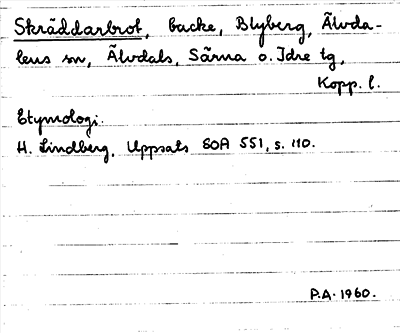 Skräddarbrot, backe, Blyberg, Älvda-
lens sn, Älvdals, Särna o. Idre tg,
Kopp. l.
Etymologi.
H. Lindberg, Uppsats SOA 551, s. 110.
P.A. 1960.